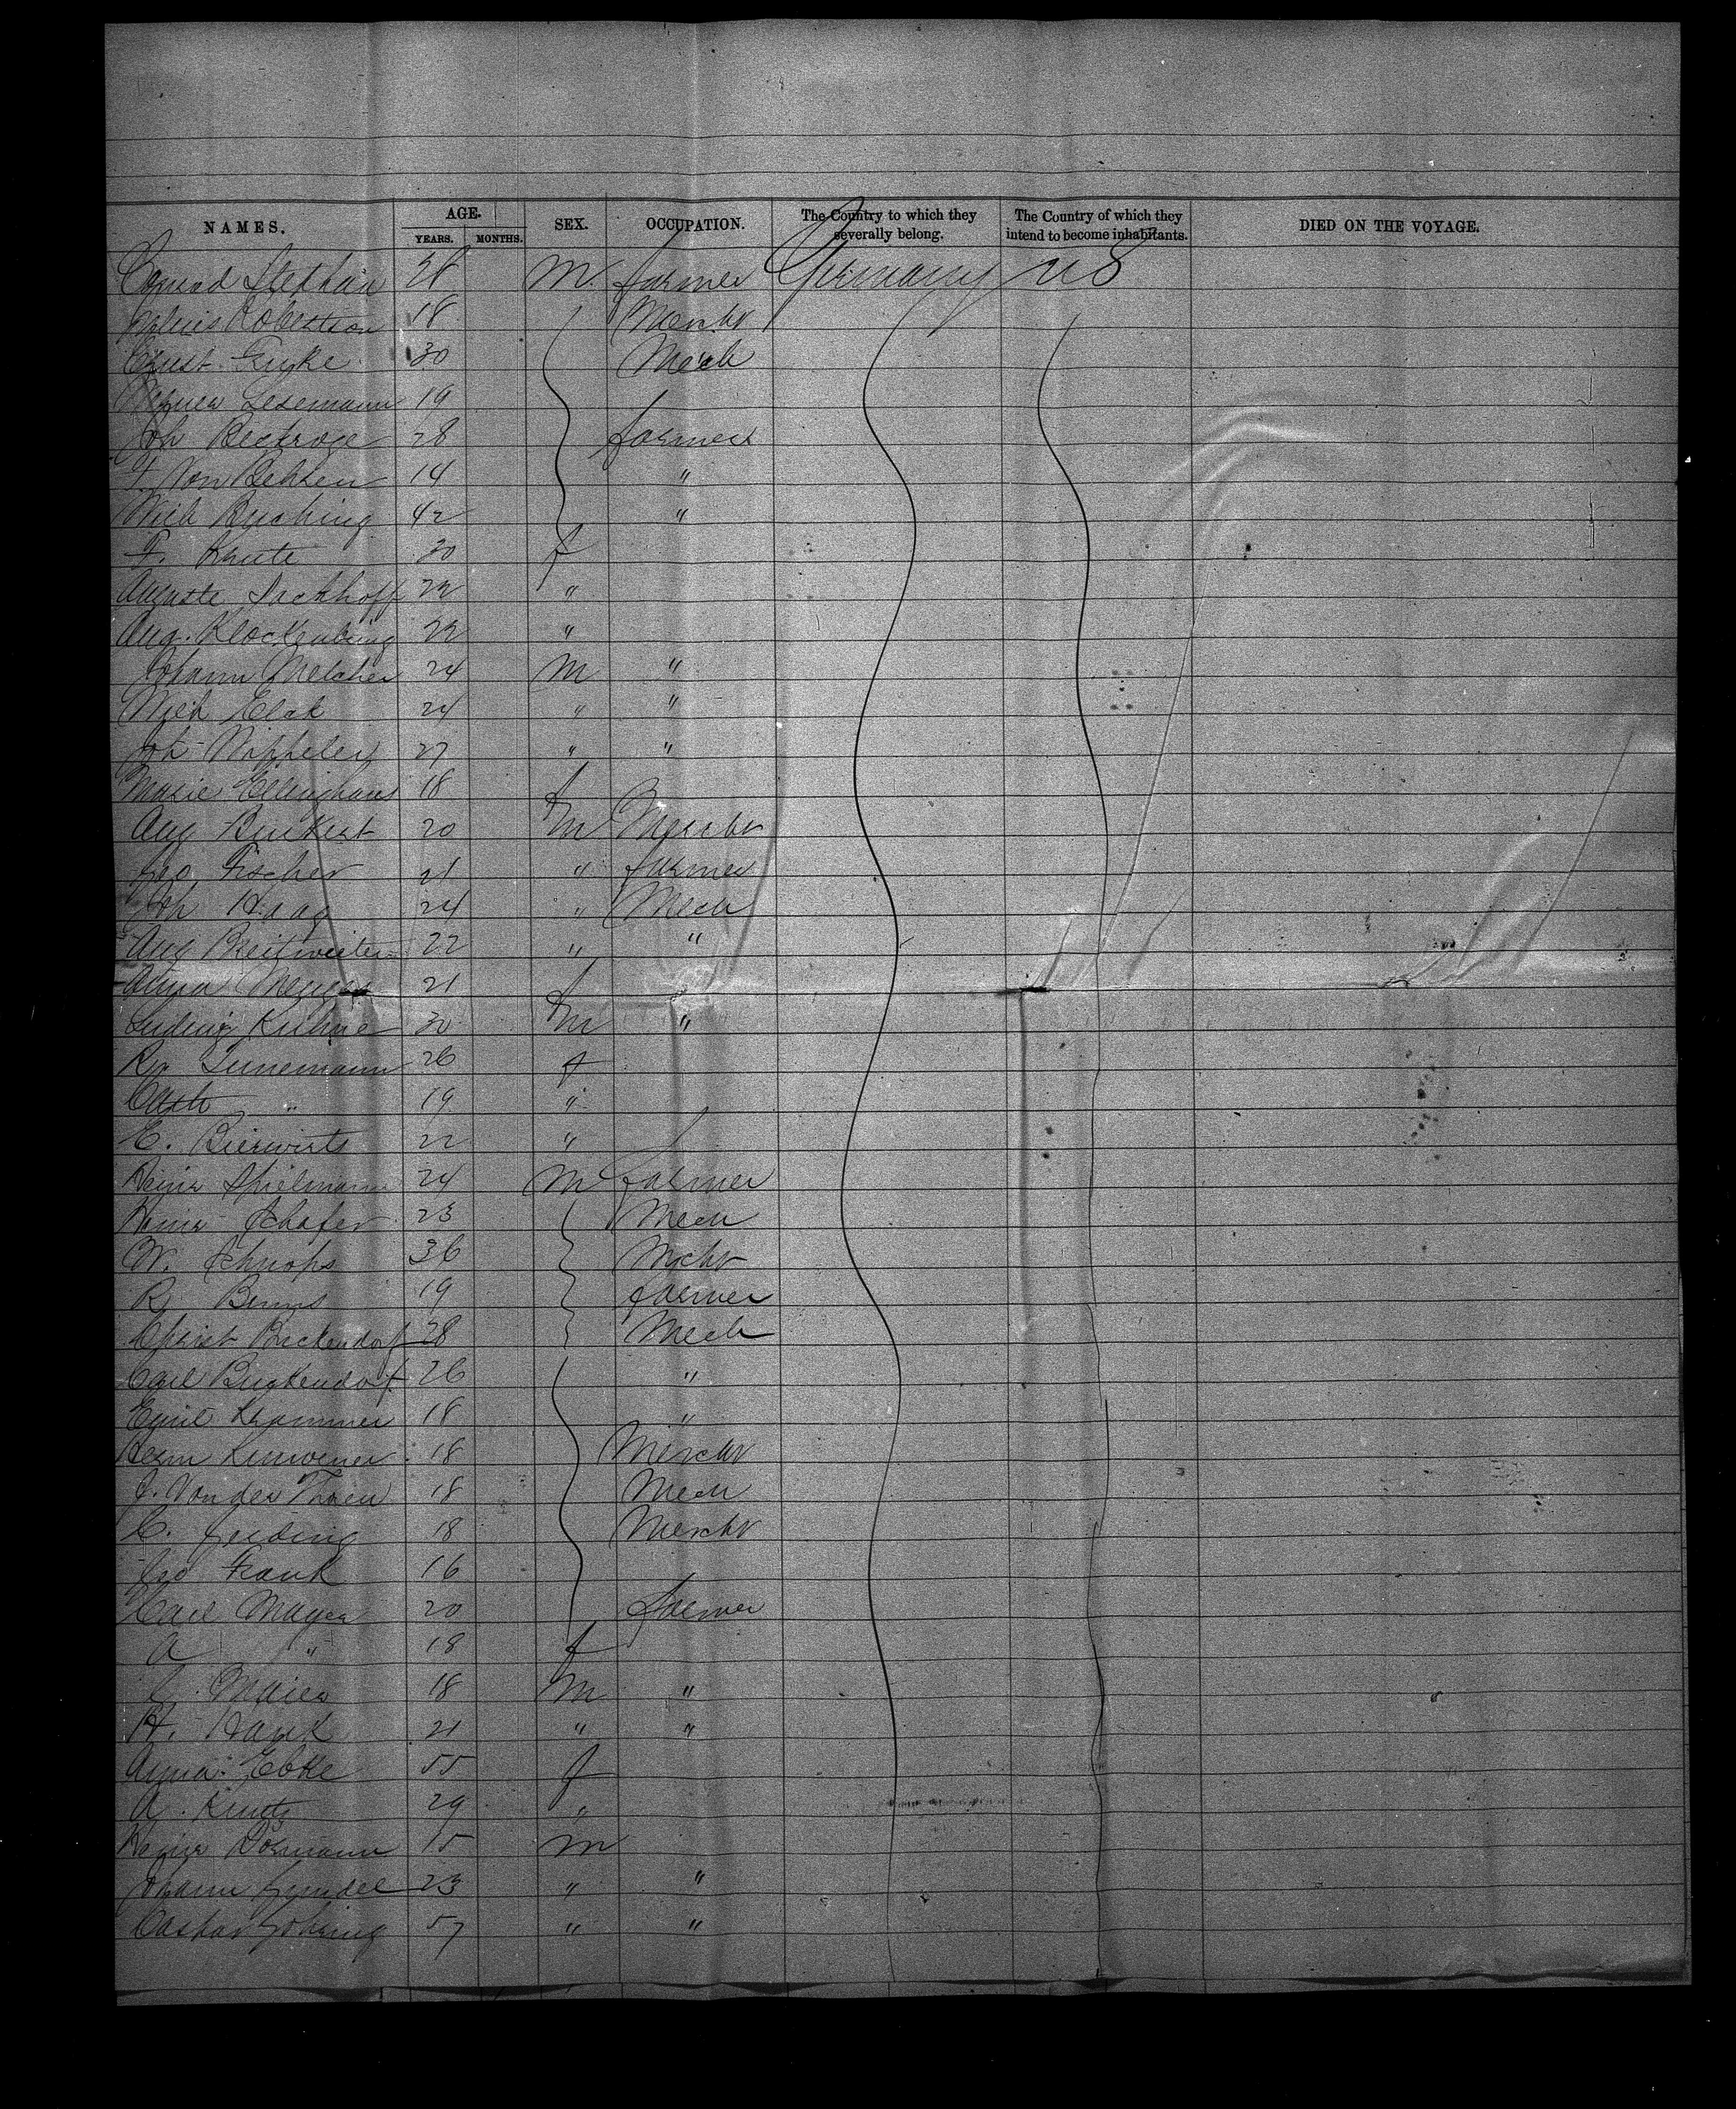 NAMES. AGE. SEX. OCCUPATION. The Country to which they severally belong. The Country of which they intend to become inhabitants. DIED ON THE VOYAGE.
YEARS. MONTHS.
Conrad Stephan 38 M. farmer Germany US
Robertson 18 Mercht
Ernst 30 Mech
Lesemann 19
Joh 28 farmers
F. Von Behren 14 "
Wilh Busching 42 "
F. Knute 30 f
Auguste Sackhoff 22 "
Aug. Klockenbring 22 "
Johann Melcher 24 M "
Wilh 24 " "
Joh Nippeler 27 " "
Marie Ellinghaus 18 f
Aug 20 m Mercht
Geo Fischer 21 " farmer
Joh Haag 24 " Mech
Aug Breitweiler 22 " "
Anna 21 f
Ludwig Kuhne 30 m "
Lunemann 26 f
Cath " 19 "
E. Bierwirts 22 "
Heinr Spielmann 24 M farmer
Heinr Schafer 23 Mech
W. Schnops 36 Mcht
R. 19 farmer
Christ Buckendorf 28 Mech
Carl Buckendorf 26 "
Emil Krammer 18 "
Herm 18 Mercht
J. Von der Thuen 18 Mech
C. 18 Mercht
Geo Frank 16
Carl Mayer 20 farmer
A " 18 f
C. Maier 18 M "
H. Hank 21 " "
Anna Ebke 55 f
A. Kuntz 29 "
Heinr Dormann 15 m
Johann 23 " "
Caspar Gohring 57 " "